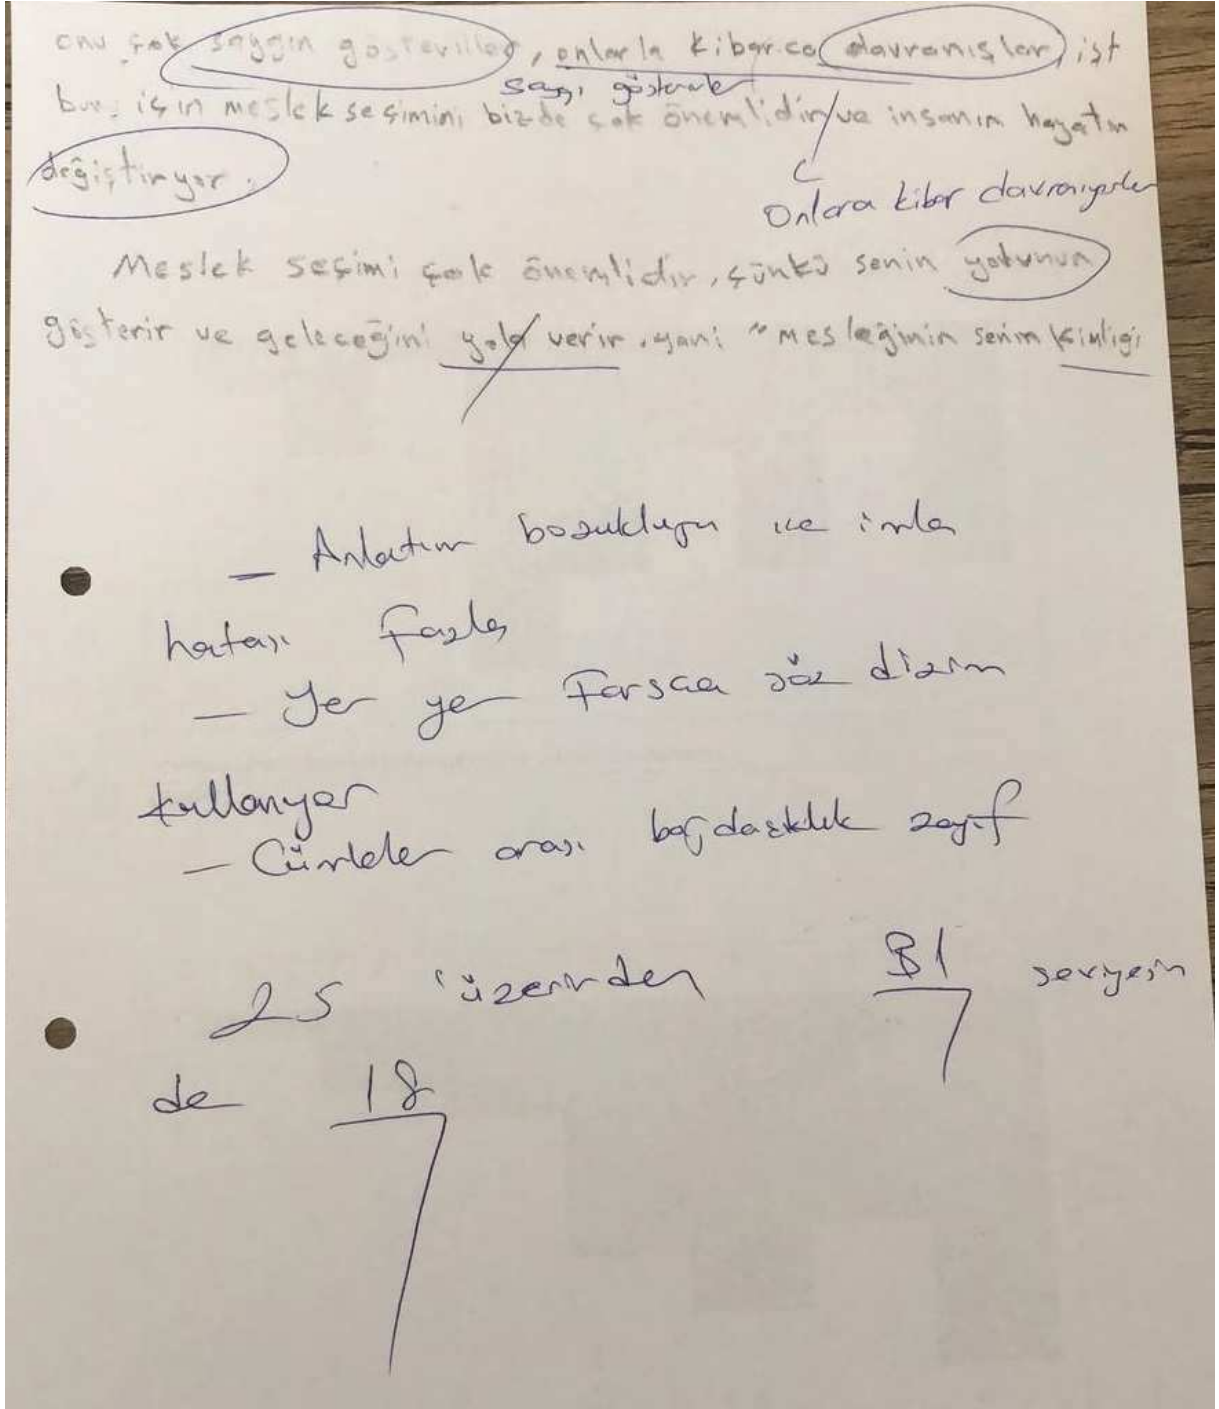 onu çok saygın gösteriller, onlarla kibarca davranışlar, işt
saygı gösterirler
bun için meslek seçimini bizde çok önemlidir ve insanın hayatın
değiştiryor.
Onlara kibar davranıyorlar
Meslek seçimi çok önemlidir, çünkü senin yolunun
gösterir ve geleceğini yola verir, yani "mesleğinin senin kimliği
— Anlatım bozukluğu ve imla
hatası fazla
— Yer yer Farsca söz dizim
kullanıyor
— Cümleler arası bağdaşıklık zayıf
25 üzerinden B1 seviyesin
de 18